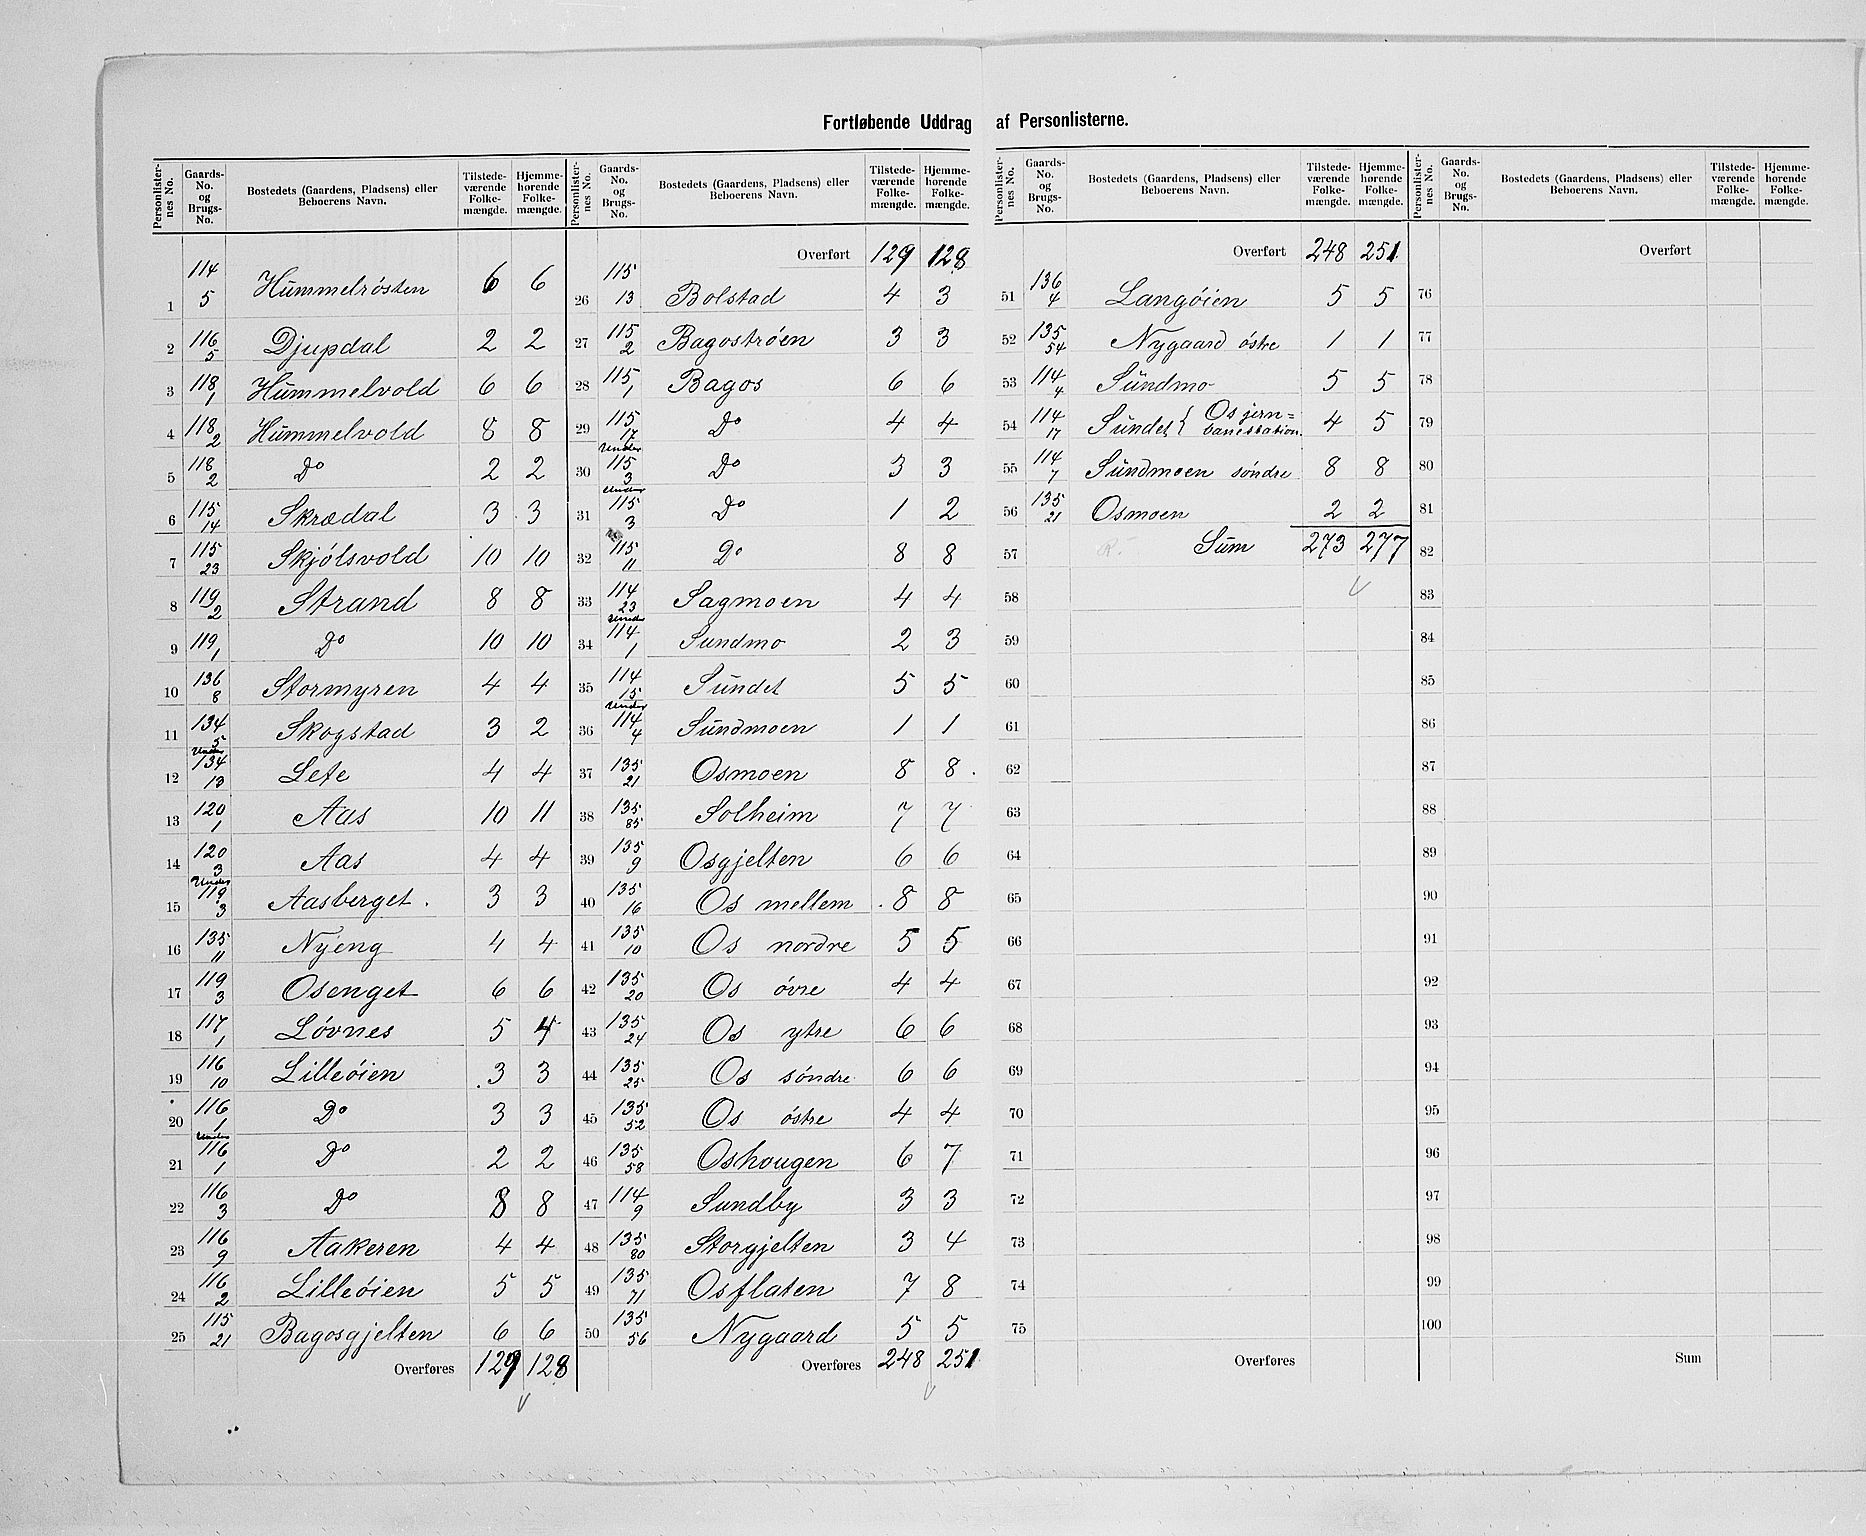 Fortløbende Uddrag af Personlisterne.
Personlister-nes No. | Gaards-No. og Brugs-No. | Bostedets (Gaardens, Pladsens) eller Beboerens Navn. | Tilstede-værende Folke-mængde. | Hjemme-hørende Folke-mængde.
1 114/5 Hummelrösten 6 6
2 116/5 Djupdal 2 2
3 118/1 Hummelvold 6 6
4 118/2 Hummelvold 8 8
5 118/2 Do 2 2
6 115/14 Skrædal 3 3
7 115/23 Skjölsvold 10 10
8 119/2 Strand 8 8
9 119/1 Do 10 10
10 136/8 Stormyren 4 4
11 134/5 Skogstad 3 2
12 Under 134/13 Lete 4 4
13 120/1 Aas 10 11
14 120/3 Aas 4 4
15 Under 119/3 Aasberget. 3 3
16 135/11 Nyeng 4 4
17 119/3 Osenget 6 6
18 117/1 Lövnes 5 4
19 116/10 Lilleöien 3 3
20 116/1 Do 3 3
21 Under 116/1 Do 2 2
22 116/3 Do 8 8
23 116/9 Aakeren 4 4
24 116/2 Lilleöien 5 5
25 115/21 Bagosgjelten 6 6
Overføres 129 128
Personlister-nes No. | Gaards-No. og Brugs-No. | Bostedets (Gaardens, Pladsens) eller Beboerens Navn. | Tilstede-værende Folke-mængde. | Hjemme-hørende Folke-mængde.
Overført 129 128
26 115/13 Bolstad 4 3
27 115/2 Bagoströen 3 3
28 115/1 Bagos 6 6
29 115/17 Do 4 4
30 Under 115/3 Do 3 3
31 Under 115/3 Do 1 2
32 115/11 Do 8 8
33 114/23 Sagmoen 4 4
34 Under 114/1 Sundmo 2 3
35 114/15 Sundet 5 5
36 Under 114/4 Sundmoen 1 1
37 135/21 Osmoen 8 8.
38 135/85 Solheim 7 7
39 135/9 Osgjelten 6 6
40 135/16 Os mellem 8 8
41 135/10 Os nordre 5 5
42 135/20 Os övre 4 4
43 135/24 Os ytre 6 6
44 135/25 Os söndre 6 6
45 135/52 Os östre 4 4
46 135/58 Oshougen 6 7
47 114/9 Sundby 3 3
48 135/80 Storgjelten 3 4
49 135/71 Osflaten 7 8
50 135/56 Nygaard 5 5
Overføres 248 251
Personlister-nes No. | Gaards-No. og Brugs-No. | Bostedets (Gaardens, Pladsens) eller Beboerens Navn. | Tilstede-værende Folke-mængde. | Hjemme-hørende Folke-mængde.
Overført 248 251
51 136/4 Langöien 5 5
52 135/54 Nygaard östre 1 1
53 114/4 Sundmo 5 5
54 114/17 Sundet { Os jern=banestation. 4 5
55 114/7 Sundmoen söndre 8 8
56 135/21 Osmoen 2 2
57 R. Sum 273 277
58
59
60
61
62
63
64
65
66
67
68
69
70
71
72
73
74
75
Overføres
Personlister-nes No. | Gaards-No. og Brugs-No. | Bostedets (Gaardens, Pladsens) eller Beboerens Navn. | Tilstede-værende Folke-mængde. | Hjemme-hørende Folke-mængde.
Overført
76
77
78
79
80
81
82
83
84
85
86
87
88
89
90
91
92
93
94
95
96
97
98
99
100
Sum